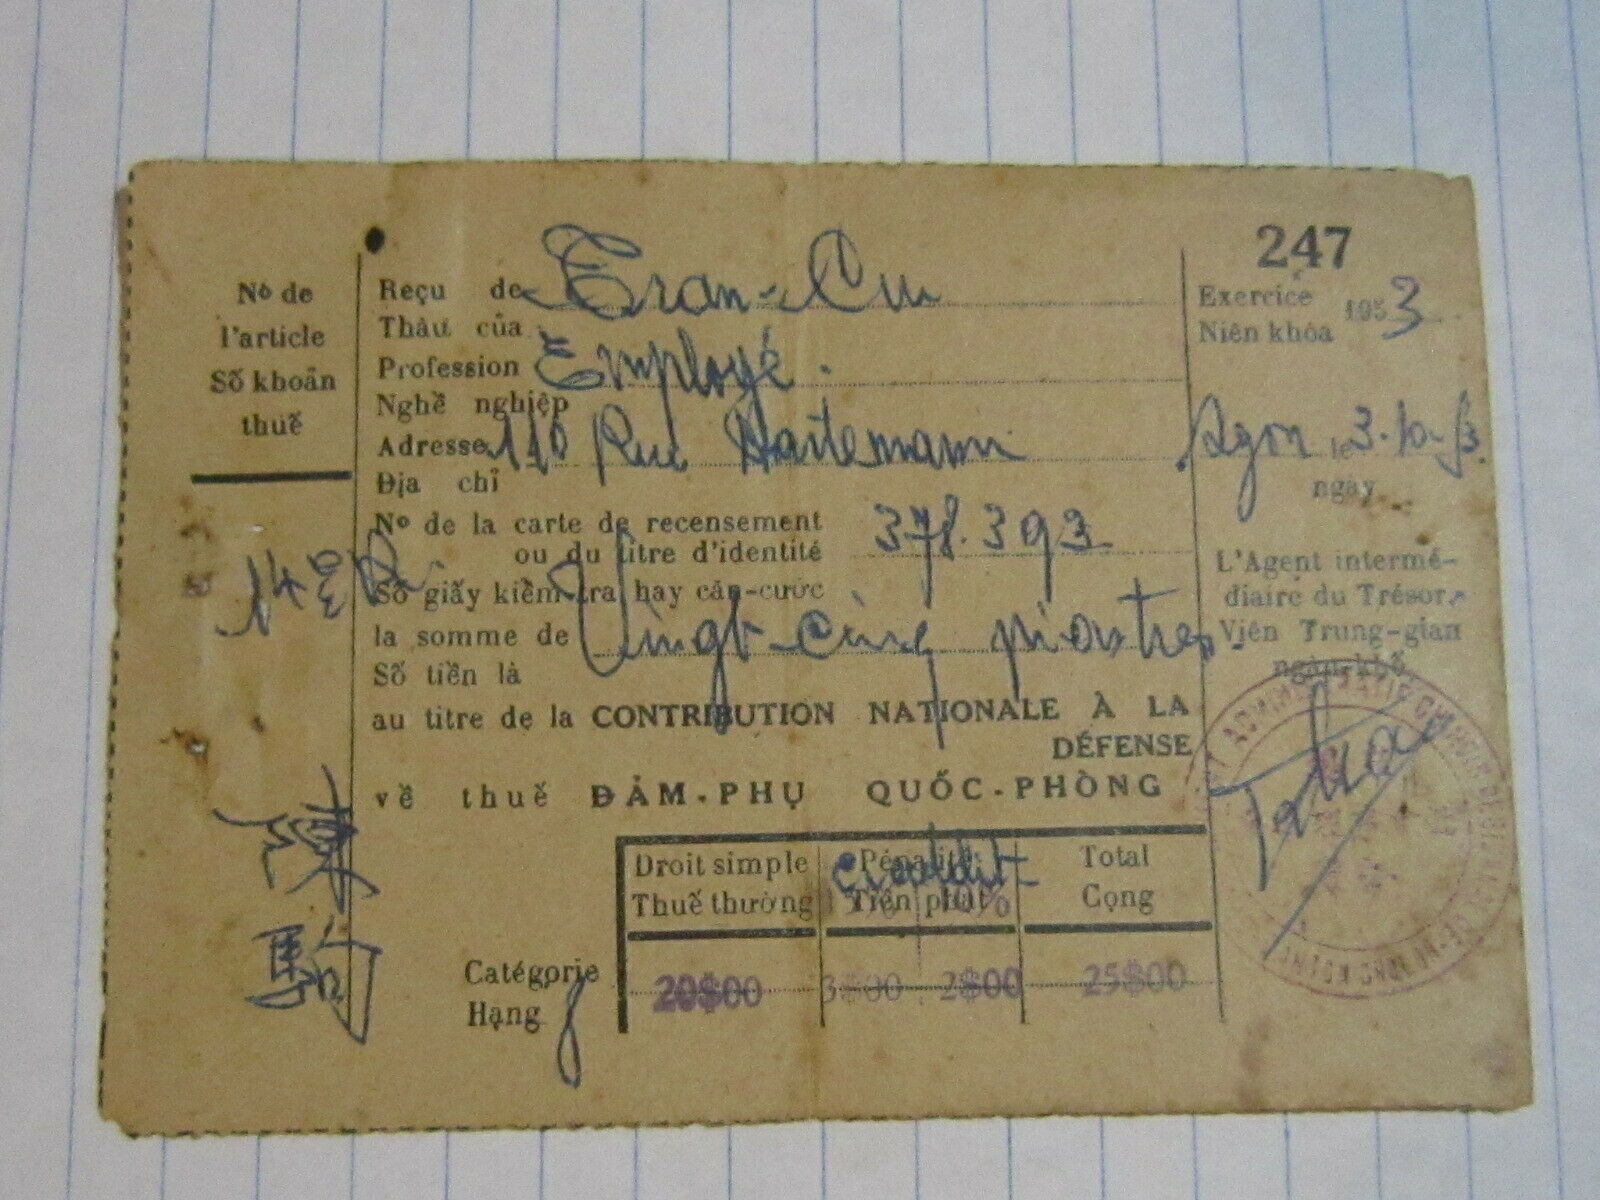 247
Nº de
l'article
Số khoản
thuế
Reçu de Tran-Cuu
Thâu của
Profession Employé.
Nghề nghiệp
Adresse 110 Rue
Địa chỉ
Nº de la carte de recensement
ou du titre d'identité 378.393
Số giấy kiểm tra hay căn-cước
la somme de Vingt-cinq piastres
Số tiền là
au titre de la CONTRIBUTION NATIONALE À LA
DÉFENSE
về thuế ĐẢM-PHỤ QUỐC-PHÒNG
陳
Exercice 1953
Niên khóa
Sgon le 3.10.53.
ngày
L'Agent intermé-
diaire du Trésor,
Viên Trung-gian
ngân-khố
Droit simple Pénalité Total
Thuế thường Tiền phạt 10% Cọng
Catégorie 20$00 3$00 2$00 25$00
Hạng